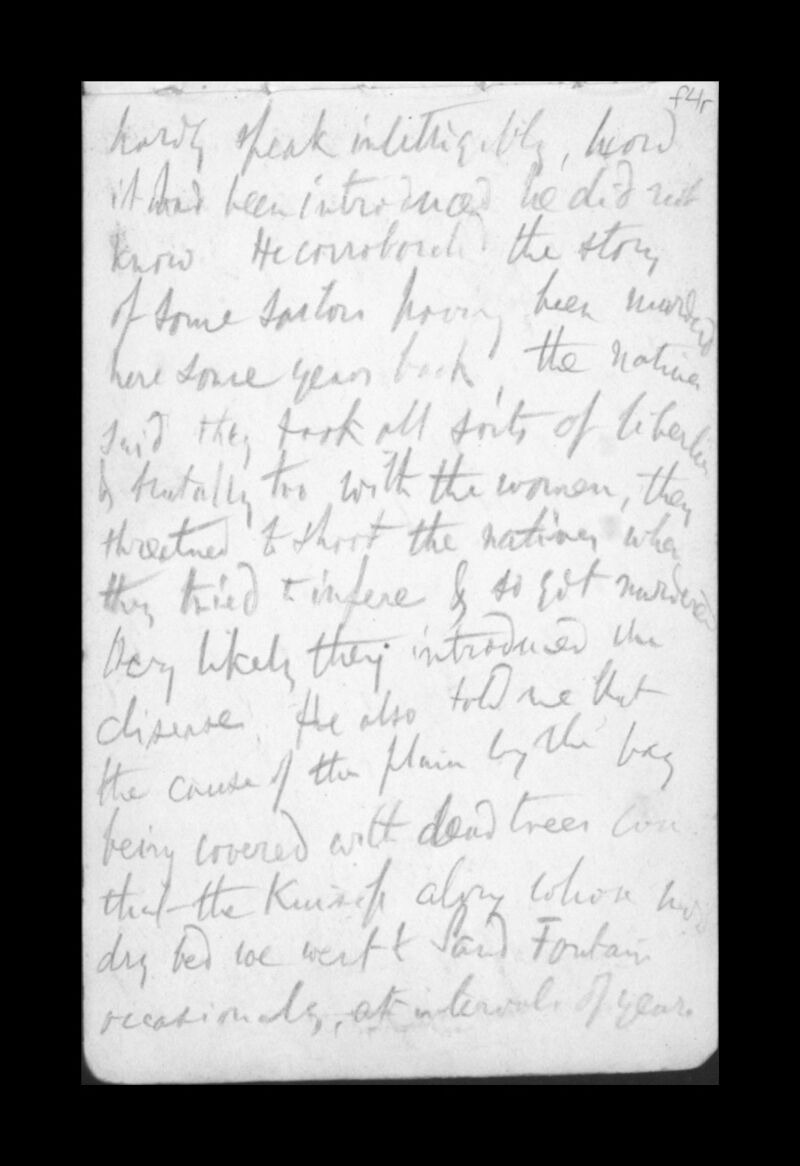 f4r
hardly speak intelligibly, how
it had been introduced he did not
know He corroborated the story
of some sailors having been murdered
here some years back, the natives
said they took all sorts of liberties
& brutally too with the women, they
threatned to shoot the natives when
they tried to infere & so got murdered
Very likely they introduced the
disease. He also told me that
the cause of the plain by the bay
being covered with dead trees was
that the Kuisip along whose now
dry bed we went to Sand Fontain
occasionally, at intervals of years